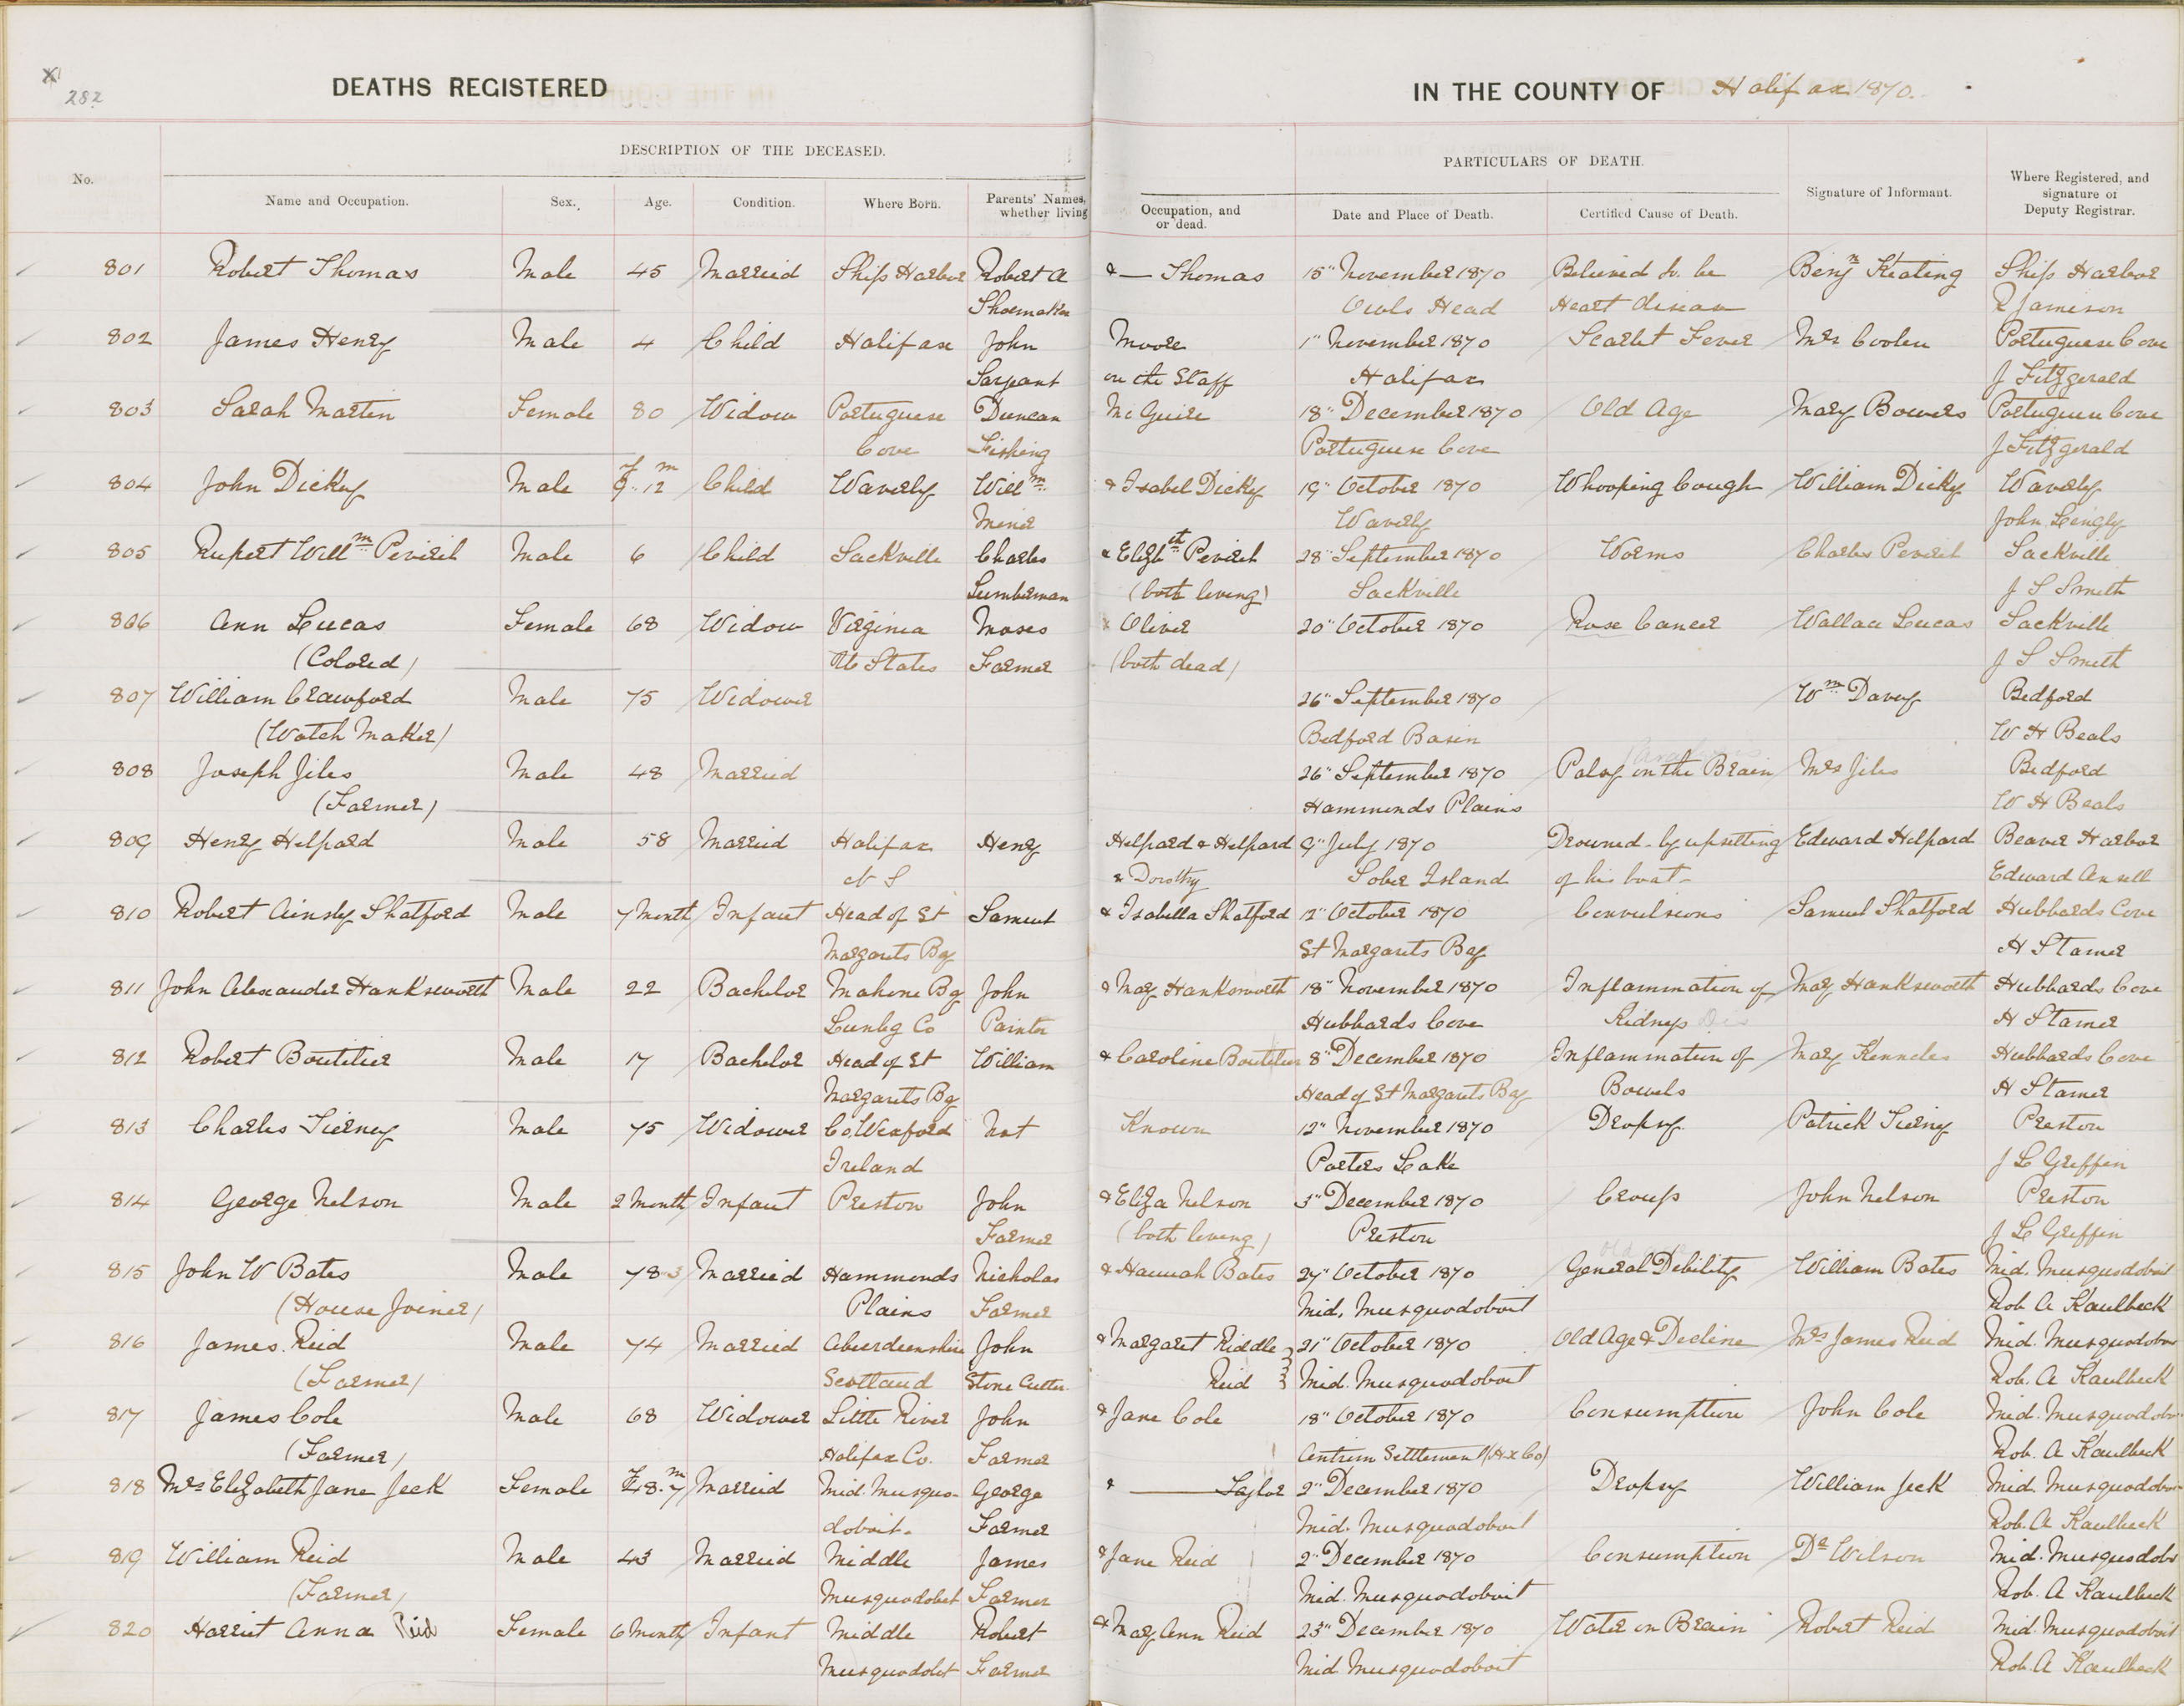 282
DEATHS REGISTERED IN THE COUNTY OF Halifax 1870.
DESCRIPTION OF THE DECEASED. PARTICULARS OF DEATH.
No. Name and Occupation. Sex. Age. Condition. Where Born. Parents' Names, whether living Occupation, and or dead. Date and Place of Death. Certified Cause of Death. Signature of Informant. Where Registered, and signature of Deputy Registrar.
801 Robert Thomas Male 45 Married Ship Harbor Robert A & — Thomas 15" November 1870 Believed to be Benjn Keating Ship Harbor
Shoemaker Owls Head Heart disease R Jamison
802 James Henry Male 4 Child Halifax John Moore 1" November 1870 Scarlet Fever Mrs Coolen Portuguese Cove
Sargeant on the Staff Halifax J Fitzgerald
803 Sarah Martin Female 80 Widow Portuguese Duncan McGuire 18" December 1870 Old Age Mary Bowers Portuguese Cove
Cove Fishing Portuguese Cove J Fitzgerald
804 John Dickey Male 9" 12 Child Waverly Willm & Isabel Dickey 19" October 1870 Whooping Cough William Dickey Waverly
Miner Waverly John Lingly
805 Rupert Willm Peveril Male 6 Child Sackville Charles & Elizbth Peveril 28" September 1870 Worms Charles Peveril Sackville
Lumberman (both living) Sackville J S Smith
806 Ann Lucas Female 68 Widow Virginia Moses Oliver 20" October 1870 Rose Cancer Wallace Lucas Sackville
(Colored) U States Farmer (both dead) J S Smith
807 William Crawford Male 75 Widower 26" September 1870 Wm Davey Bedford
(Watch Maker) Bedford Basin W H Beals
808 Joseph Jiles Male 48 Married 26" September 1870 Palsy on the Brain Mrs Jiles Bedford
(Farmer) Hammonds Plains W H Beals
809 Henry Helpard Male 58 Married Halifax Henry Helpard & Helpard 9" July 1870 Drowned - by upsetting Edward Helpard Beaver Harbor
N S & Dorothy Sober Island of his boat - Edward Ansell
810 Robert Ainsly Shatford Male 7 Month Infant Head of St Samuel & Isabella Shatford 12" October 1870 Convulsions Samuel Shatford Hubbards Cove
Margarets Bay St Margarets Bay H Stamer
811 John Alexander Hanksworth Male 22 Bachelor Mahone Bay John & Mary Hanksworth 18" November 1870 Inflammation of Mary Hanksworth Hubbards Cove
Lunbg Co Painter Hubbards Cove Kidneys Dis H Stamer
812 Robert Boutilier Male 17 Bachelor Head of St William & Caroline Boutilier 8" December 1870 Inflammation of Mary Kennels Hubbards Cove
Margarets Bay Head of St Margarets Bay Bowels H Stamer
813 Charles Tierney Male 75 Widower Co. Wexford Not Known 12" November 1870 Dropsy. Patrick Tierny Preston
Ireland Porters Lake J L Griffin
814 George Nelson Male 2 Month Infant Preston John & Eliza Nelson 3" December 1870 Croup John Nelson Preston
Farmer (both living) Preston J L Griffin
815 John W Bates Male 78 3 Married Hammonds Nicholas & Hannah Bates 27" October 1870 General Debility William Bates Mid. Musquodoboit
(House Joiner) Plains Farmer Mid. Musquodoboit Rob. A Kaulbeck
816 James Reid Male 74 Married Aberdeenshire John & Margaret Riddle 21" October 1870 Old Age & Decline Mrs James Reid Mid. Musquodoboit
(Farmer) Scotland Stone Cutter. Reid Mid. Musquodoboit Rob. A Kaulbeck
817 James Cole Male 68 Widower Little River John & Jane Cole 18" October 1870 Consumption John Cole Mid. Musquodoboit
(Farmer) Halifax Co. Farmer Antrim Settlement (Hx Co) Rob. A Kaulbeck
818 Mrs Elizabeth Jane Jeck Female 28. 7m Married Mid. Musquo- George & — Taylor 2" December 1870 Dropsy William Jeck Mid. Musquodoboit
doboit. Farmer Mid. Musquodoboit Rob. A Kaulbeck
819 William Reid Male 43 Married Middle James & Jane Reid 2" December 1870 Consumption Dr Wilson Mid. Musquodoboit
(Farmer) Musquodobot Farmer Mid. Musquodoboit Rob. A Kaulbeck
820 Harriet Anna Reid Female 6 Month Infant Middle Robert & Mary Ann Reid 23" December 1870 Water on Brain Robert Reid Mid. Musquodoboit
Musquodobot Farmer Mid Musquodoboit Rob. A Kaulbeck